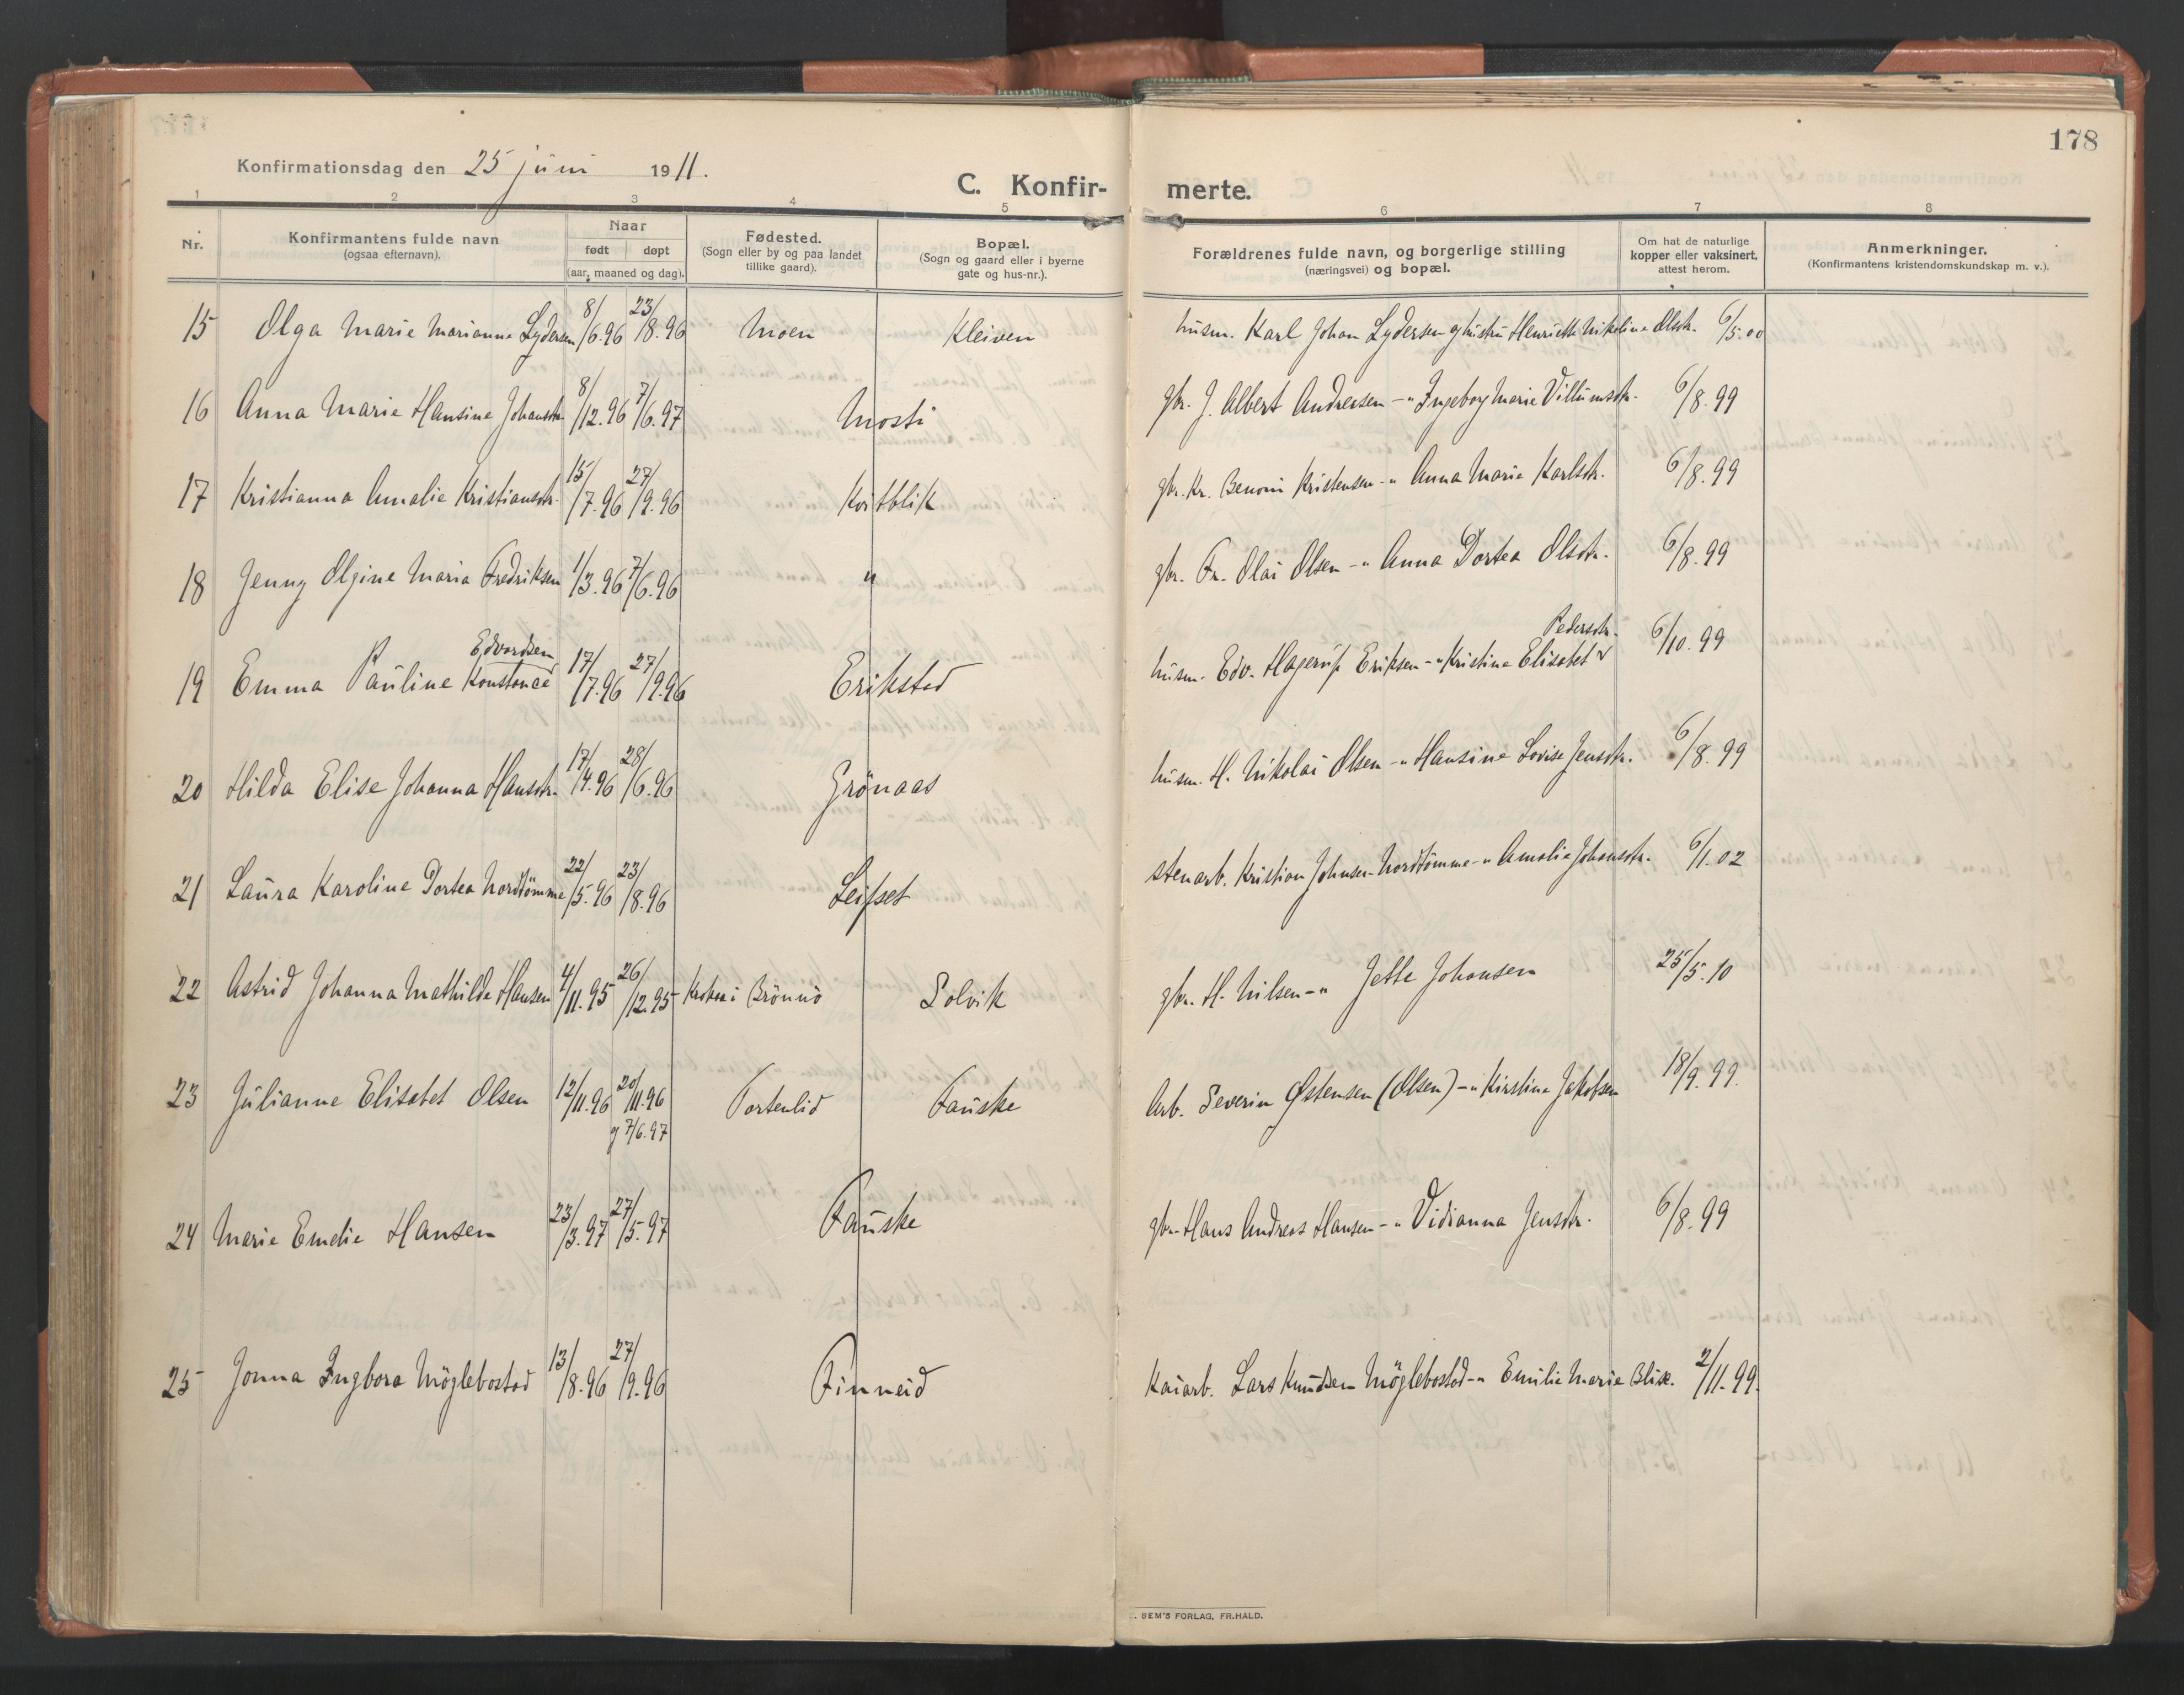 178
Konfirmationsdag den 25 juni 1911.
C. Konfirmerte.
1 2 3 4 5 6 7 8
Nr.
Konfirmantens fulde navn
(ogsaa efternavn).
Naar
født døpt
(aar, maaned og dag).
Fødested.
(Sogn eller by og paa landet
tillike gaard).
Bopæl.
(Sogn og gaard eller i byerne
gate og hus-nr.).
Forældrenes fulde navn, og borgerlige stilling
(næringsvei) og bopæl.
Om hat de naturlige
kopper eller vaksinert,
attest herom.
Anmerkninger.
(Konfirmantens kristendomskundskap m. v.).
15 Olga Marie Marianne Lydersen 8/6.96 23/8.96 Moen Kleiven husm. Karl Johan Lydersen og hustru Henriette Nikoline Olsdtr. 6/5.00
16 Anna Marie Hansine Johansdtr. 8/12.96 7/6.97 Mosti gbr. J. Albert Andersen -"- Ingeborg Marie Villumsdtr. 6/8.99
17 Kristianna Amalie Kristiansdtr. 15/7.96 27/9.96 Kvitblik gbr. Kr. Benoni Kristensen -"- Anna Marie Karlsdtr. 6/8.99
18 Jenny Olgine Maria Fredriksen 1/3.96 7/6.96 " gbr. Fr. Olai Olsen -"- Anna Dortea Olsdtr. 6/8.99
19 Emma Pauline Konstance Edvardsen 17/7.96 27/9.96 Erikstad husm. Edv. Hagerup Eriksen -"- Kristine Elisabet Pedersdtr. 6/10.99
20 Hilda Elise Johanna Hansdtr. 17/4.96 28/6.96 Grönaas husm. H. Nikolai Olsen -"- Hansine Lovise Jensdtr. 6/8.99
21 Laura Karoline Dortea Nordtömme 22/5.96 23/8.96 Leifset stenarb. Kristian Johnsen Nordtömme -"- Amalie Johansdtr. 6/1.02
22 Astrid Johanna Mathilde Hansen 4/11.95 26/12.95 i Brönnö Solvik gbr. H. Nilsen -"- Jette Johansen 25/5.10
23 Julianne Elisabet Olsen 12/11.96 20/11.96 Tortenlid Fauske Arb. Severin Østensen (Olsen) -"- Kirstine Jakobsen 18/9.99.
og 7/6.97
24 Marie Emelie Hansen 23/3.97 27/5.97 Fauske gbr. Hans Andreas Hansen -"- Vidianna Jensdtr. 6/8.99
25 Jonna Ingbora Möglebostad 13/8.96 27/9.96 Finneid Kaiarb. Lars Knudsen Möglebostad -"- Emilie Marie Blix. 2/11.99.
. SEM'S FORLAG, FR.HALD.